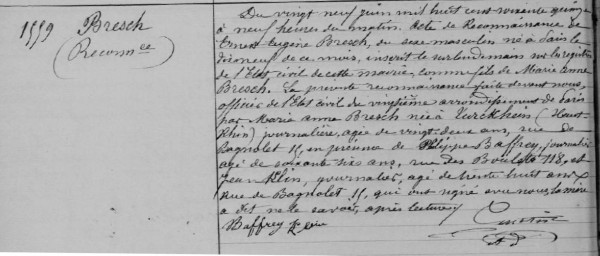 1559 Bresch
(Reconn.ce)
Du vingt neuf juin mil huit cent soixante quinze
à neuf heures du matin. Acte de Reconnaissance de
Ernest Eugène Bresch, du sexe masculin né à Paris le
dixneuf de ce mois, inscrit le surlendemain sur les registres
de l'Etat civil de cette mairie, comme fils de Marie Anne
Bresch. La présente reconnaissance faite devant nous,
officier de l'Etat civil du vingtième arrondissement de Paris
par Marie Anne Bresch née à Turckheim (Haut-
Rhin) journalière, agée de vingt deux ans, rue de
Bagnolet 15, en présence de Philippe Baffrey, journalier
agé de soixante six ans, rue des Boulets 118, et
Jean Klin, journalier, agé de trente huit ans
Rue de Bagnolet 15, qui ont signé avec nous, la mère
a dit ne le savoir, après lecture
Baffrey